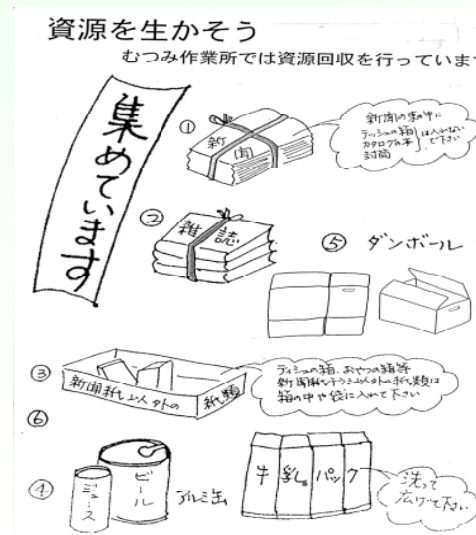 資源を生かそう
むつみ作業所では資源回収を行っています
集めています
①
新聞
新聞の束の中に
ティッシュの箱
カタログの本
封筒
は入れない
で下さい
②
雑誌
⑤ ダンボール
③
新聞紙以外の
紙類
ティシュの箱、おやつの箱等
新聞紙チラシ以外の紙類は
箱の中や袋に入れて下さい
⑥
④
ジュース
ビール
アルミ缶
牛乳パック
洗って
広げて下さい